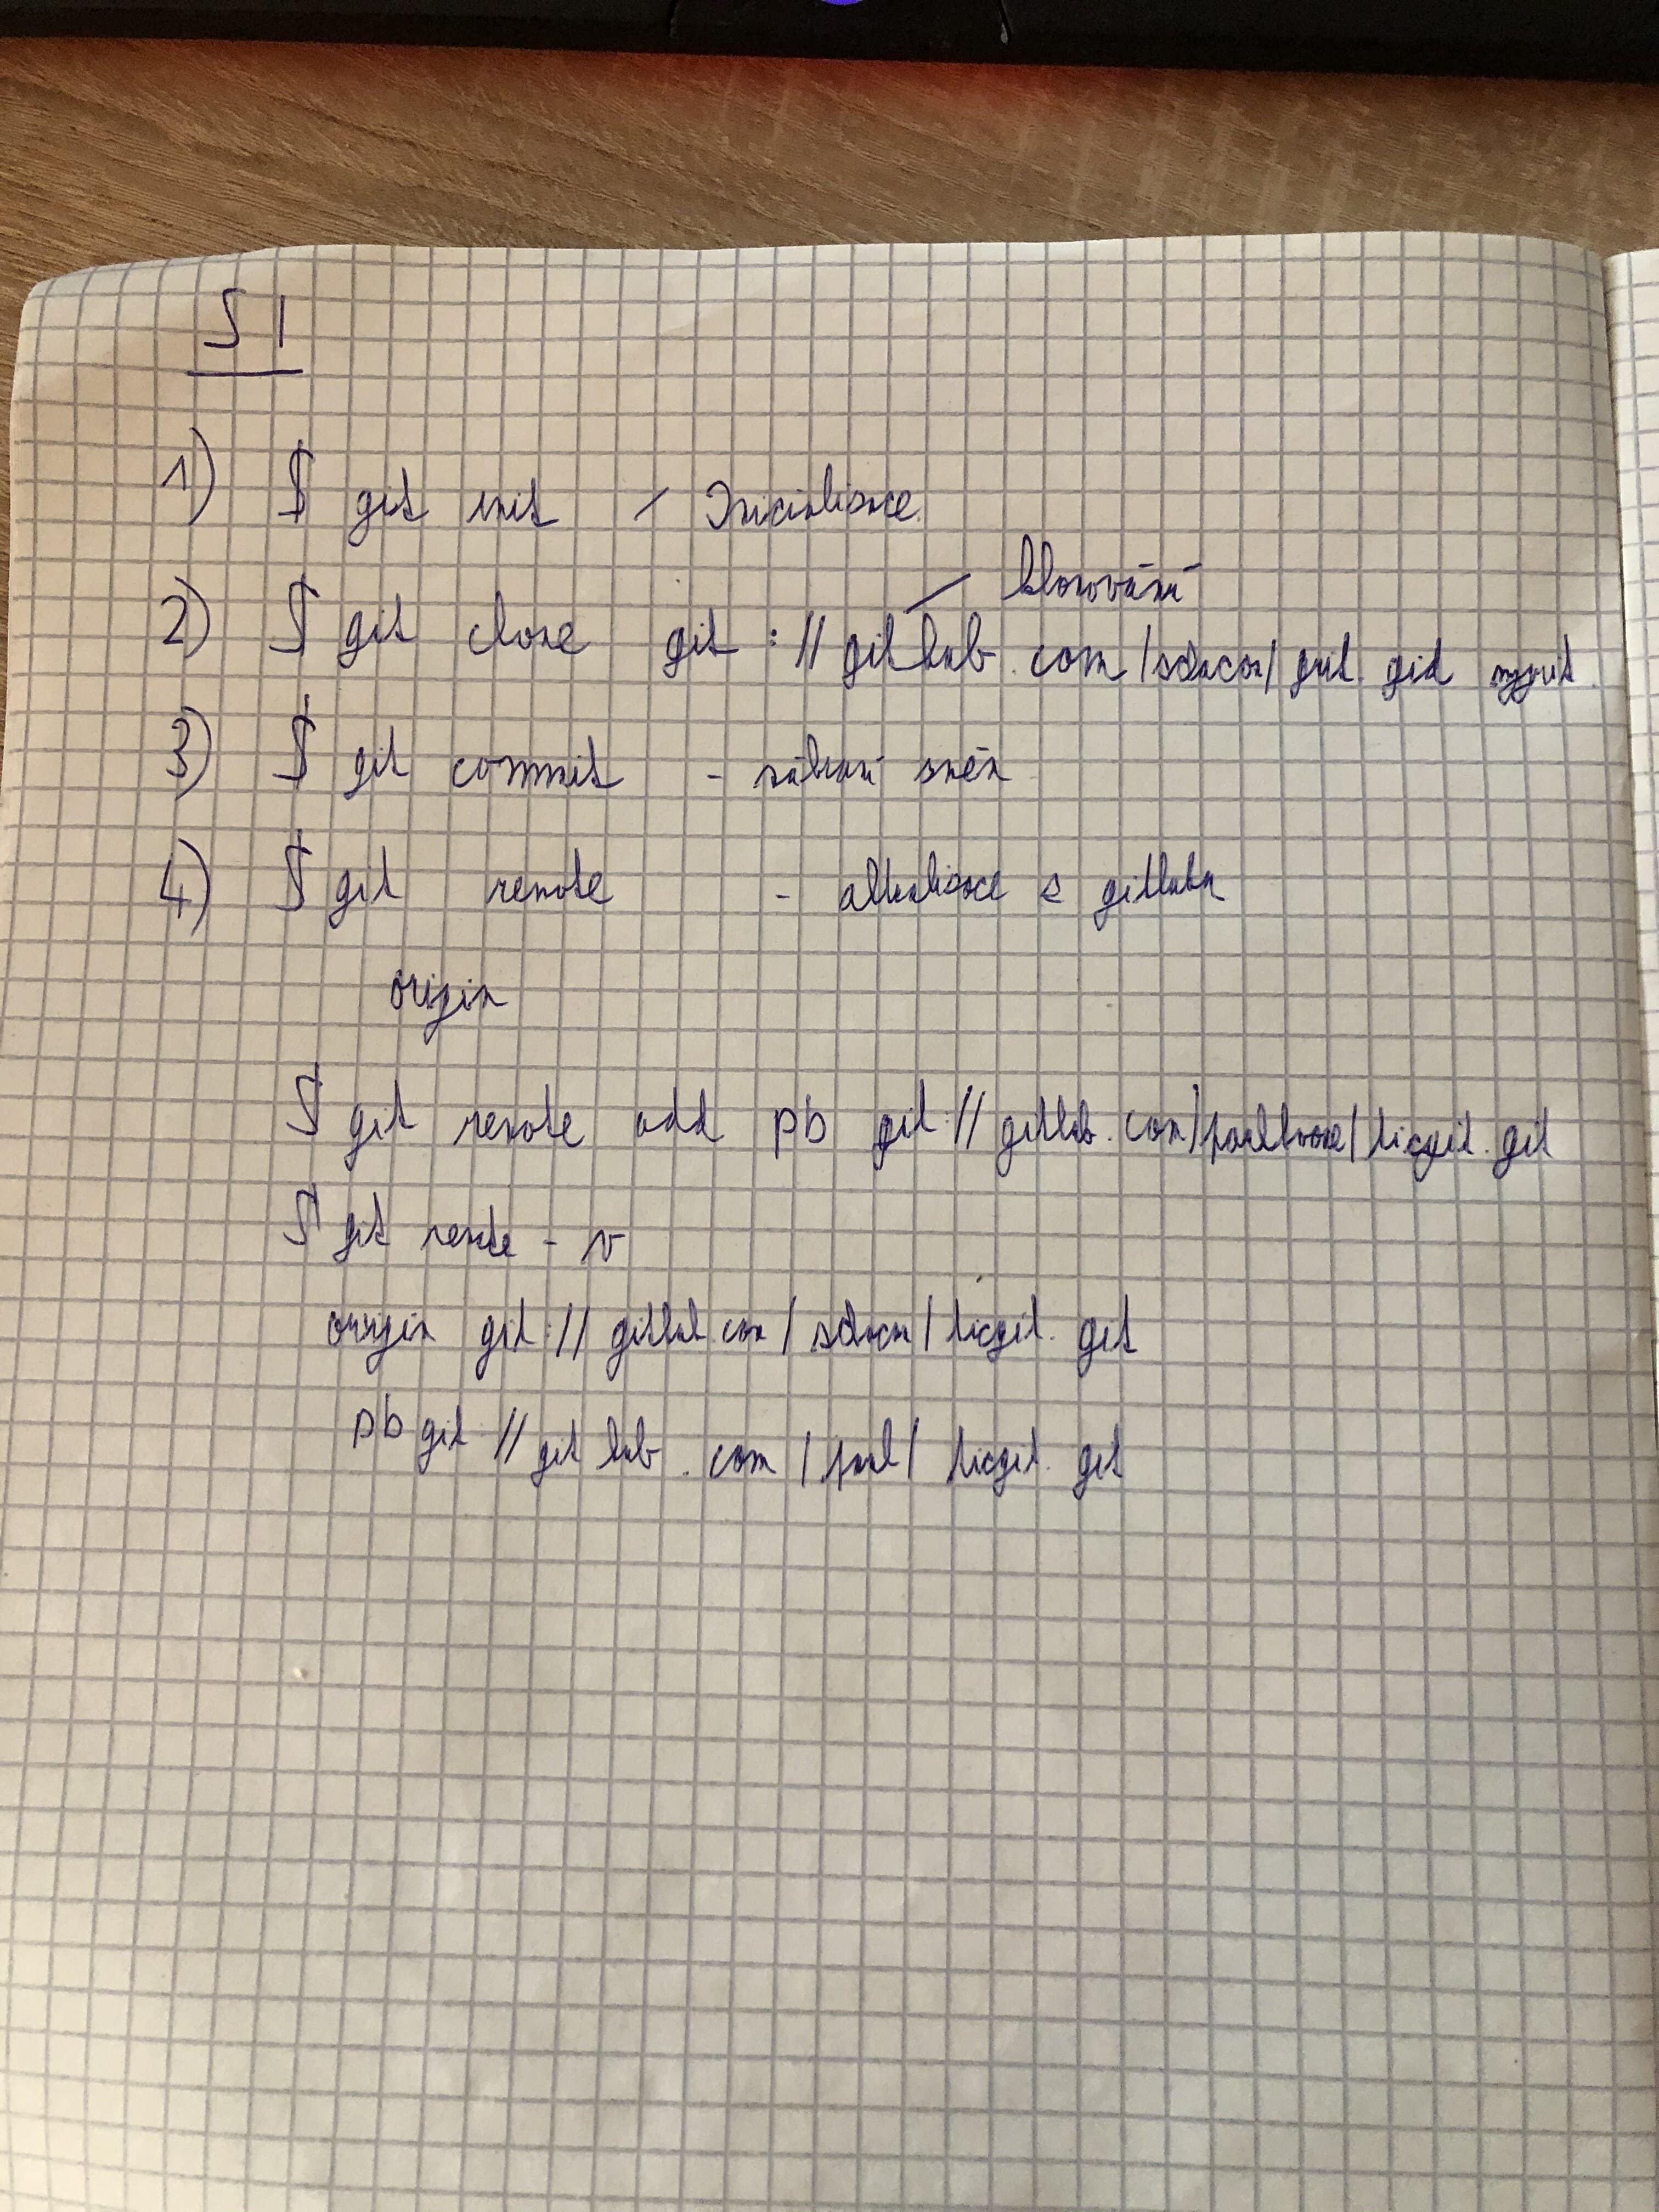 S1
1) $ git init - Inicializace
- klonování
2) $ git clone git://github.com/schacon/grit.git mygrit
3) $ git commit - nahraní změn
4) $ git remote - aktualizace z githubu
origin
$ git remote add pb git://github.com/paulboone/ticgit.git
$ git remote -v
origin git://github.com/schacon/ticgit.git
pb git://github.com/paul/ticgit.git